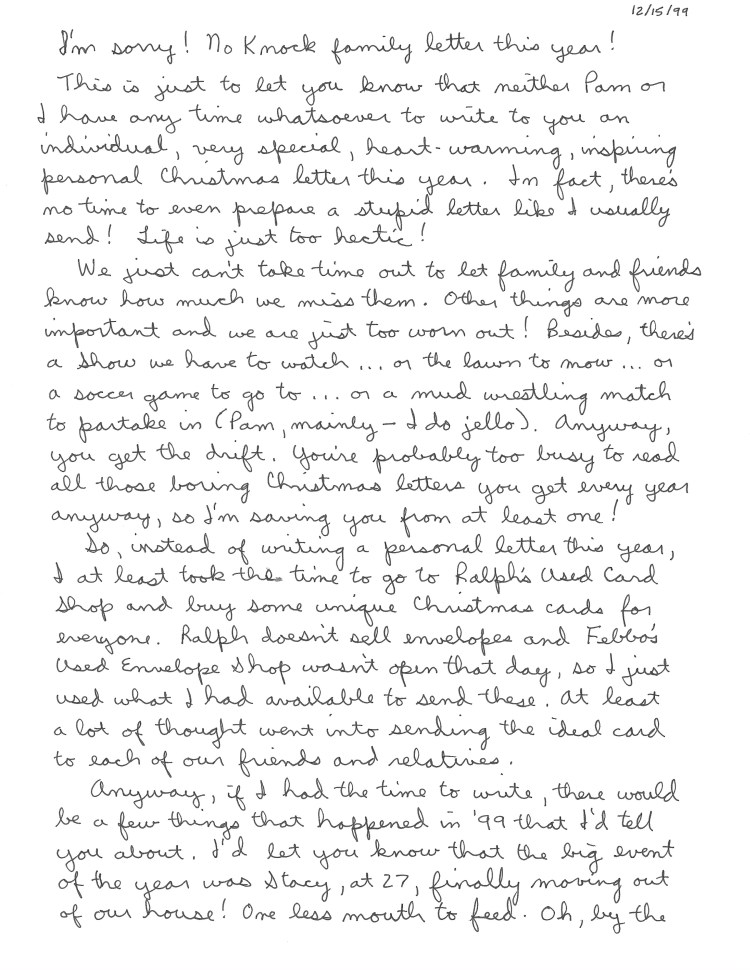 12/15/99
I'm sorry! No Knock family letter this year!
This is just to let you know that neither Pam or
I have any time whatsoever to write to you an
individual, very special, heart-warming, inspiring
personal Christmas letter this year. In fact, there's
no time to even prepare a stupid letter like I usually
send! Life is just too hectic!
We just can't take time out to let family and friends
know how much we miss them. Other things are more
important and we are just too worn out! Besides, there's
a show we have to watch ... or the lawn to mow ... or
a soccer game to go to ... or a mud wrestling match
to partake in (Pam, mainly - I do jello). Anyway,
you get the drift. You're probably too busy to read
all those boring Christmas letters you get every year
anyway, so I'm saving you from at least one!
So, instead of writing a personal letter this year,
I at least took the time to go to Ralph's Used Card
Shop and buy some unique Christmas cards for
everyone. Ralph doesn't sell envelopes and Febbo's
Used Envelope Shop wasn't open that day, so I just
used what I had available to send these. At least
a lot of thought went into sending the ideal card
to each of our friends and relatives.
Anyway, if I had the time to write, there would
be a few things that happened in '99 that I'd tell
you about. I'd let you know that the big event
of the year was Stacy, at 27, finally moving out
of our house! One less mouth to feed. Oh, by the